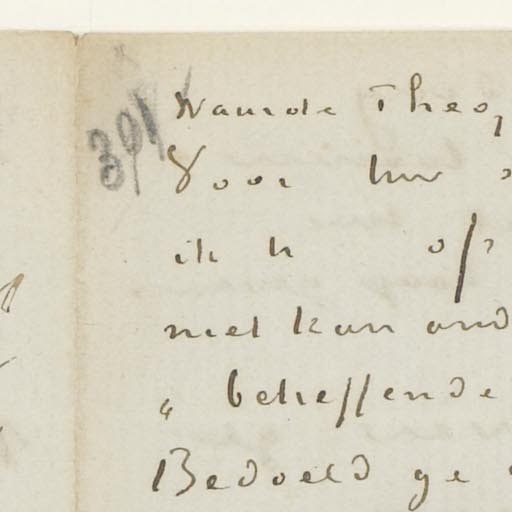 391
Waarde Theo,
Voor uw
ik u of
niet kan and
„ betreffende
Bedoeld ge